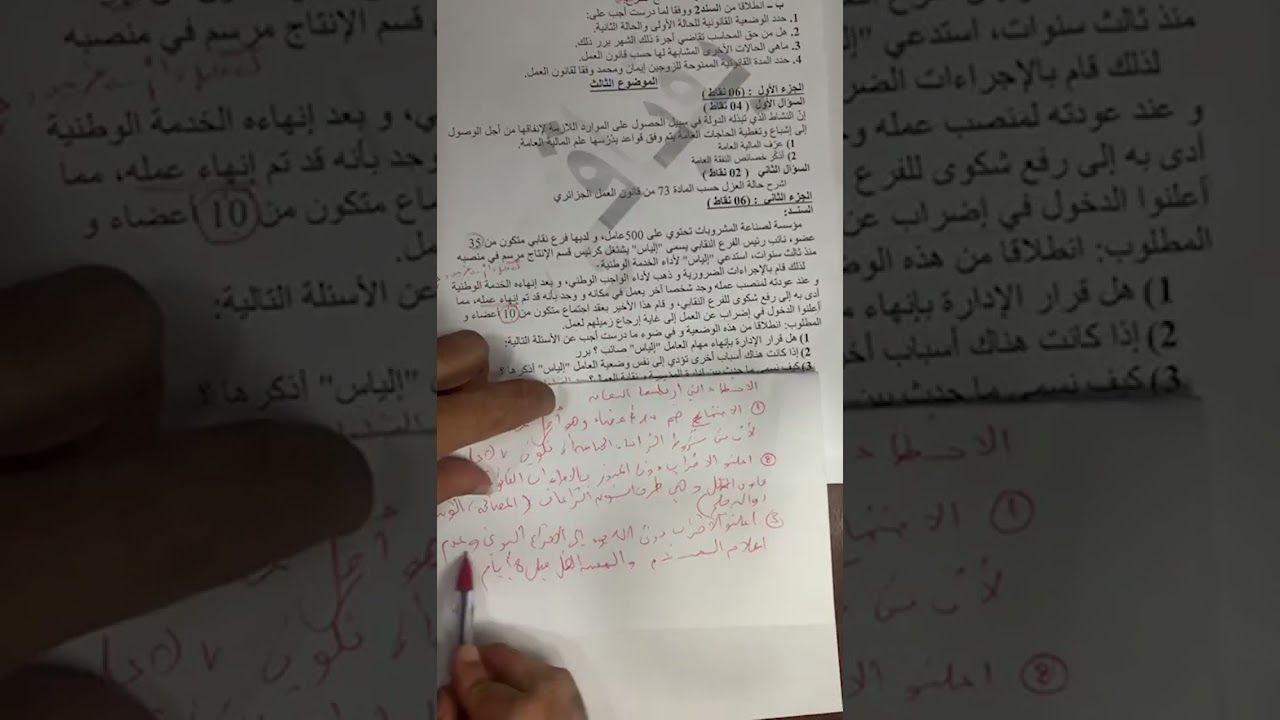 ب – انطلاقا من السند2 ووفقا لما درست أجب على:
1. حدد الوضعية القانونية للحالة الأولى والحالة الثانية.
2. هل من حق المحاسب تقاضي أجرة ذلك الشهر برر ذلك.
3. ماهي الحالات الأخرى المشابهة لها حسب قانون العمل.
4. حدد المدة القانونية الممنوحة للزوجين إيمان ومحمد وفقا لقانون العمل.
الموضوع الثالث
الجزء الأول : (06 نقاط)
السؤال الأول (04 نقاط)
إنّ النشاط الذي تبذله الدولة في سبيل الحصول على الموارد اللازمة لإنفاقها من أجل الوصول
إلى إشباع وتغطية الحاجات العامة يتم وفق قواعد يدرّسها علم المالية العامة.
1) عرّف المالية العامة
2) أذكر خصائص النفقة العامة
السؤال الثاني (02 نقاط)
اشرح حالة العزل حسب المادة 73 من قانون العمل الجزائري
الجزء الثاني : (06 نقاط)
السند:
مؤسسة لصناعة المشروبات تحتوي على 500عامل، و لديها فرع نقابي متكون من 35
عضو، نائب رئيس الفرع النقابي يسمى "إلياس" يشتغل كرئيس قسم الإنتاج مرسم في منصبه
منذ ثالث سنوات، استدعي "إلياس" لأداء الخدمة الوطنية.
لذلك قام بالإجراءات الضرورية و ذهب لأداء الواجب الوطني، و بعد إنهاءه الخدمة الوطنية
و عند عودته لمنصب عمله وجد شخصا آخر يعمل في مكانه و وجد بأنه قد تم إنهاء عمله، مما
أدى به إلى رفع شكوى للفرع النقابي، و قام هذا الأخير بعقد اجتماع متكون من 10 أعضاء و
أعلنوا الدخول في إضراب عن العمل إلى غاية إرجاع زميلهم لعمل.
المطلوب: انطلاقا من هذه الوضعية و في ضوء ما درست أجب عن الأسئلة التالية:
1) هل قرار الإدارة بإنهاء مهام العامل "إلياس" صائب ؟ برر
2) إذا كانت هناك أسباب أخرى تؤدي إلى نفس وضعية العامل "إلياس" أذكرها ؟
3) كيف نسمي ما حدث بين إدارة المؤسسة و نقابة العمل؟
الاخطاء التي ارتكبتها النقابة
① الاجتماع ضم
② اعلنوا الاضراب دون المرور
قانون العمل و هي طرق تسوية النزاعات (المصالحة،
③ اعلنوا الاضراب دون اللجوء إلى الاقتراع السري و عدم
اعلام المستخدم قبل 8 أيام